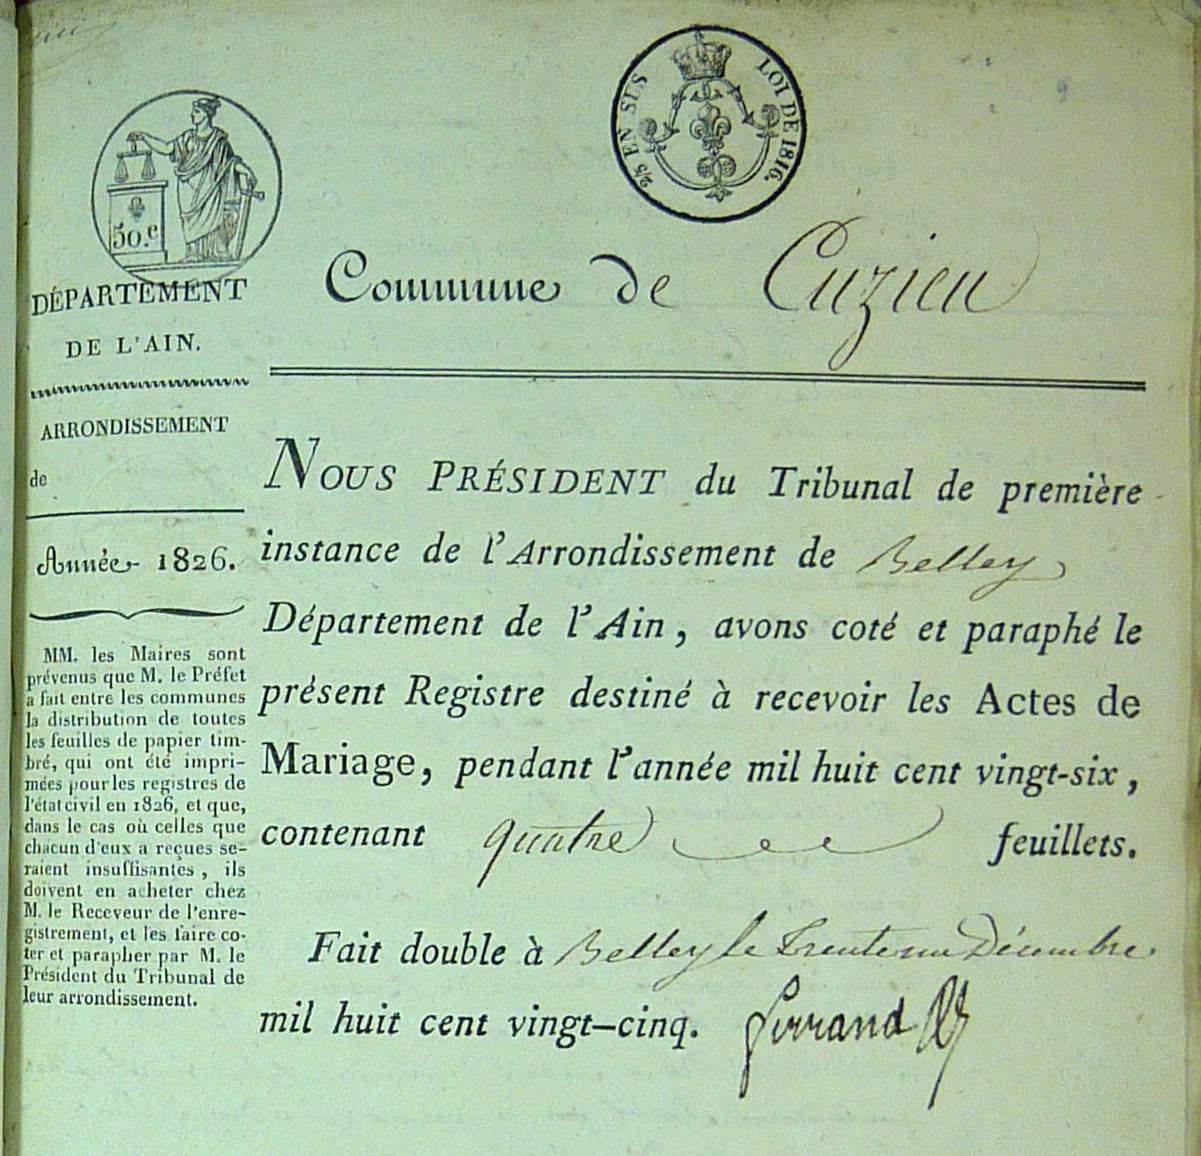 2/5 EN SUS LOI DE 1816.
50.c
DÉPARTEMENT
DE L'AIN.
ARRONDISSEMENT
de
Année 1826.
MM. les Maires sont
prévenus que M. le Préfet
a fait entre les communes
la distribution de toutes
les feuilles de papier tim-
bré, qui ont été impri-
mées pour les registres de
l'état civil en 1826, et que,
dans le cas où celles que
chacun d'eux a reçues se-
raient insuffisantes, ils
doivent en acheter chez
M. le Receveur de l'enre-
gistrement, et les faire co-
ter et parapher par M. le
Président du Tribunal de
leur arrondissement.
Commune de Cuzieu
NOUS PRÉSIDENT du Tribunal de première
instance de l'Arrondissement de Belley
Département de l'Ain, avons coté et paraphé le
présent Registre destiné à recevoir les Actes de
Mariage, pendant l'année mil huit cent vingt-six,
contenant quatre feuillets.
Fait double à Belley le trente un Décembre
mil huit cent vingt-cinq. Ferrand